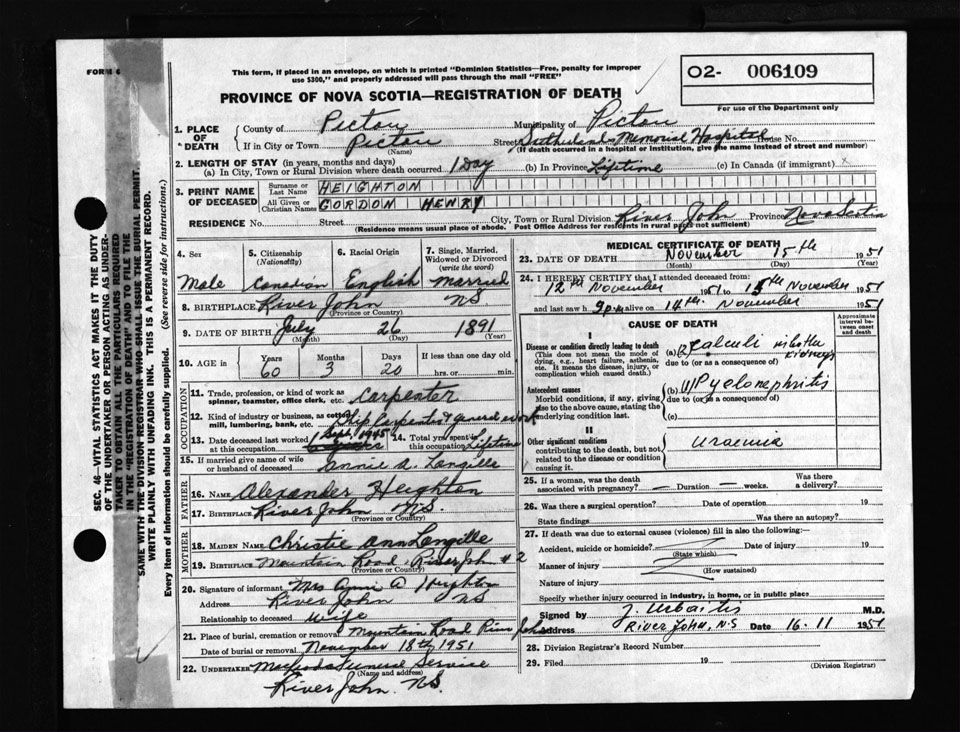 FORM 6
This form, if placed in an envelope, on which is printed "Dominion Statistics—Free, penalty for improper
use $300," and properly addressed will pass through the mail "FREE"
O2- 006109
For use of the Department only
PROVINCE OF NOVA SCOTIA—REGISTRATION OF DEATH
1. PLACE OF DEATH
County of Pictou Municipality of Pictou
If in City or Town Pictou (Name) Street Sutherland Memorial Hospital House No.
(If death occurred in a hospital or institution, give the name instead of street and number)
2. LENGTH OF STAY (in years, months and days)
(a) In City, Town or Rural Division where death occurred 1 Day (b) In Province Lifetime (c) In Canada (if immigrant) x
3. PRINT NAME OF DECEASED
Surname or Last Name HEIGHTON
All Given or Christian Names GORDON HENRY
RESIDENCE No. Street City, Town or Rural Division River John Province Nova Scotia
(Residence means usual place of abode. Post Office Address for residents in rural parts not sufficient)
4. Sex Male
5. Citizenship (Nationality) Canadian
6. Racial Origin English
7. Single, Married, Widowed or Divorced (write the word) Married
8. BIRTHPLACE River John NS
(Province or Country)
9. DATE OF BIRTH July 26 1891
(Month) (Day) (Year)
10. AGE in Years 60 Months 3 Days 20 If less than one day old hrs. or min.
OCCUPATION
11. Trade, profession, or kind of work as spinner, teamster, office clerk, etc. Carpenter
12. Kind of industry or business, as cotton mill, lumbering, bank, etc. Ship Carpenter & general work
13. Date deceased last worked at this occupation Sept 1945
14. Total yrs. spent in this occupation Lifetime
15. If married give name of wife or husband of deceased Annie A. Langille
FATHER
16. NAME Alexander Heighton
17. BIRTHPLACE River John NS.
(Province or Country)
MOTHER
18. MAIDEN NAME Christie Ann Langille
19. BIRTHPLACE Mountain Road River John #2
(Province or Country)
20. Signature of informant Mrs Annie A Heighton
Address River John NS
Relationship to deceased Wife
21. Place of burial, cremation or removal Mountain Road River John
Date of burial or removal November 18th 1951
22. UNDERTAKER MacLeods Funeral Service
(Name and address)
River John. NS.
MEDICAL CERTIFICATE OF DEATH
23. DATE OF DEATH November 15th 1951
(Month) (Day) (Year)
24. I HEREBY CERTIFY that I attended deceased from:
12th November 1951 to 15th November 1951
and last saw h alive on 14th November 1951
CAUSE OF DEATH
Approximate interval between onset and death
I
Disease or condition directly leading to death
(This does not mean the mode of dying, e.g., heart failure, asthenia, etc. It means the disease, injury, or complication which caused death.)
(a) Calculi in both kidneys
due to (or as a consequence of)
Antecedent causes
Morbid conditions, if any, giving rise to the above cause, stating the underlying condition last.
(b) Pyelonephritis
due to (or as a consequence of)
(c)
II
Other significant conditions
contributing to the death, but not related to the disease or condition causing it.
Uraemia
25. If a woman, was the death associated with pregnancy? — Duration — weeks. Was there a delivery?
26. Was there a surgical operation? Date of operation 19
State findings Was there an autopsy?
27. If death was due to external causes (violence) fill in also the following:—
Accident, suicide or homicide? Date of injury 19
(State which)
Manner of injury
(How sustained)
Nature of injury
Specify whether injury occurred in industry, in home, or in public place
Signed by J. Urbaitis M.D.
Address River John, N.S Date 16-11 1951
28. Division Registrar's Record Number
29. Filed 19
(Division Registrar)
SEC. 46—VITAL STATISTICS ACT MAKES IT THE DUTY
OF THE UNDERTAKER OR PERSON ACTING AS UNDER-
TAKER TO OBTAIN ALL THE PARTICULARS REQUIRED
IN THE "REGISTRATION OF DEATH" AND TO FILE THE
SAME WITH THE DIVISION REGISTRAR WHO SHALL ISSUE THE BURIAL PERMIT.
WRITE PLAINLY WITH UNFADING INK. THIS IS A PERMANENT RECORD.
Every item of information should be carefully supplied. (See reverse side for instructions.)